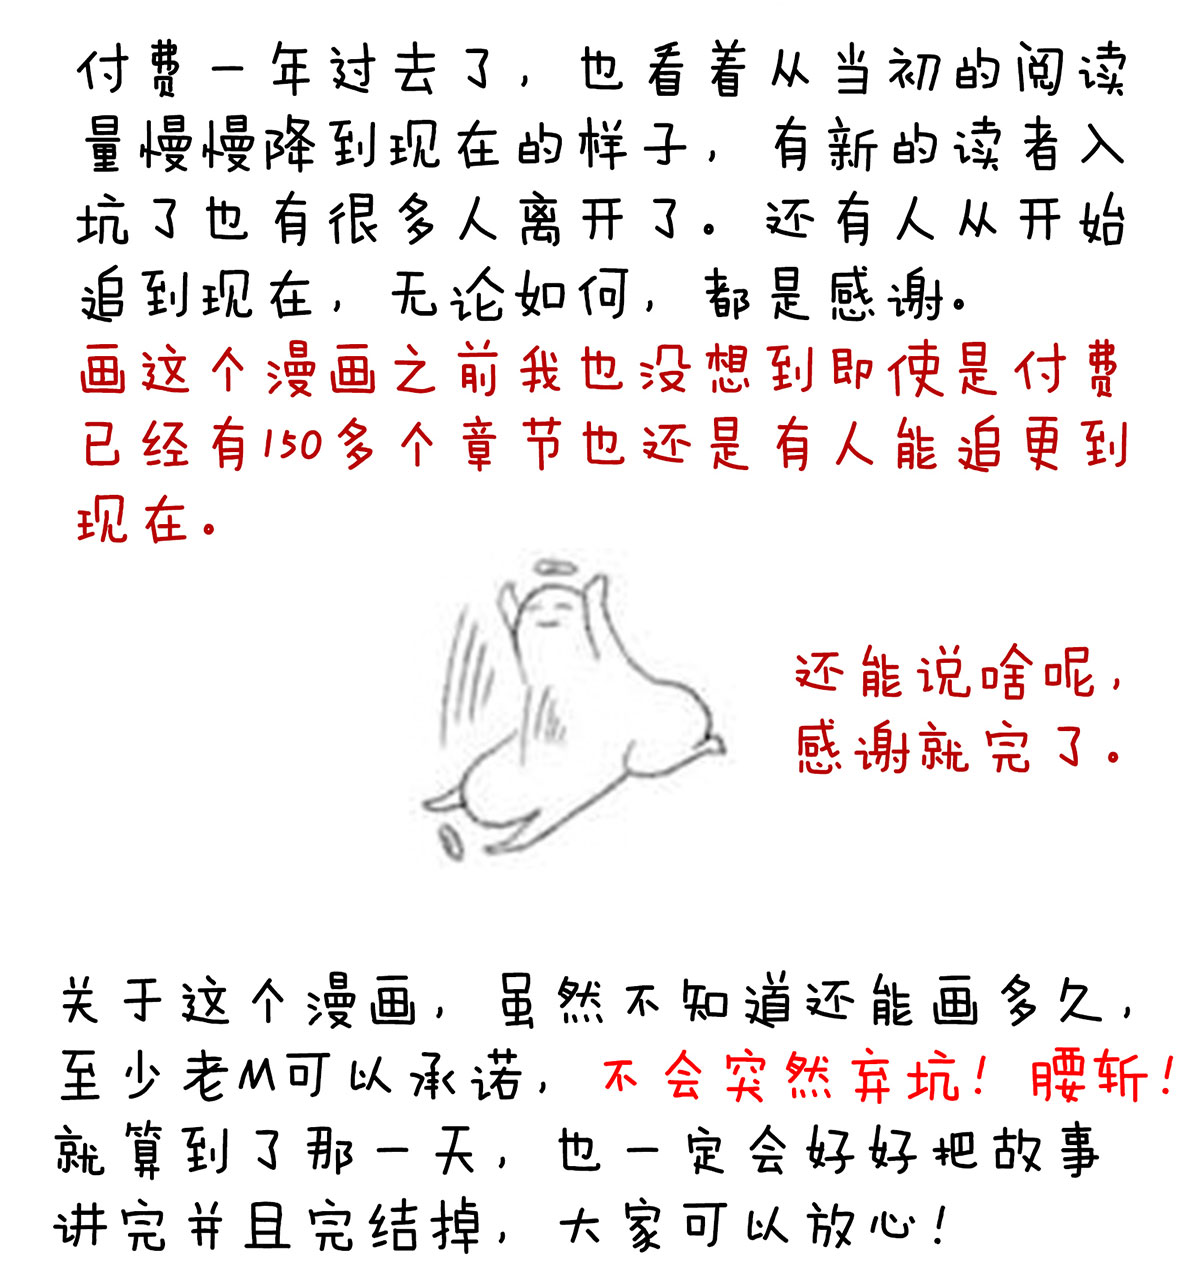 付费一年过去了，也看着从当初的阅读
量慢慢降到现在的样子，有新的读者入
坑了也有很多人离开了。还有人从开始
追到现在，无论如何，都是感谢。
画这个漫画之前我也没想到即使是付费
已经有150多个章节也还是有人能追更到
现在。
还能说啥呢，
感谢就完了。
关于这个漫画，虽然不知道还能画多久，
至少老M可以承诺，不会突然弃坑！腰斩！
就算到了那一天，也一定会好好把故事
讲完并且完结掉，大家可以放心！